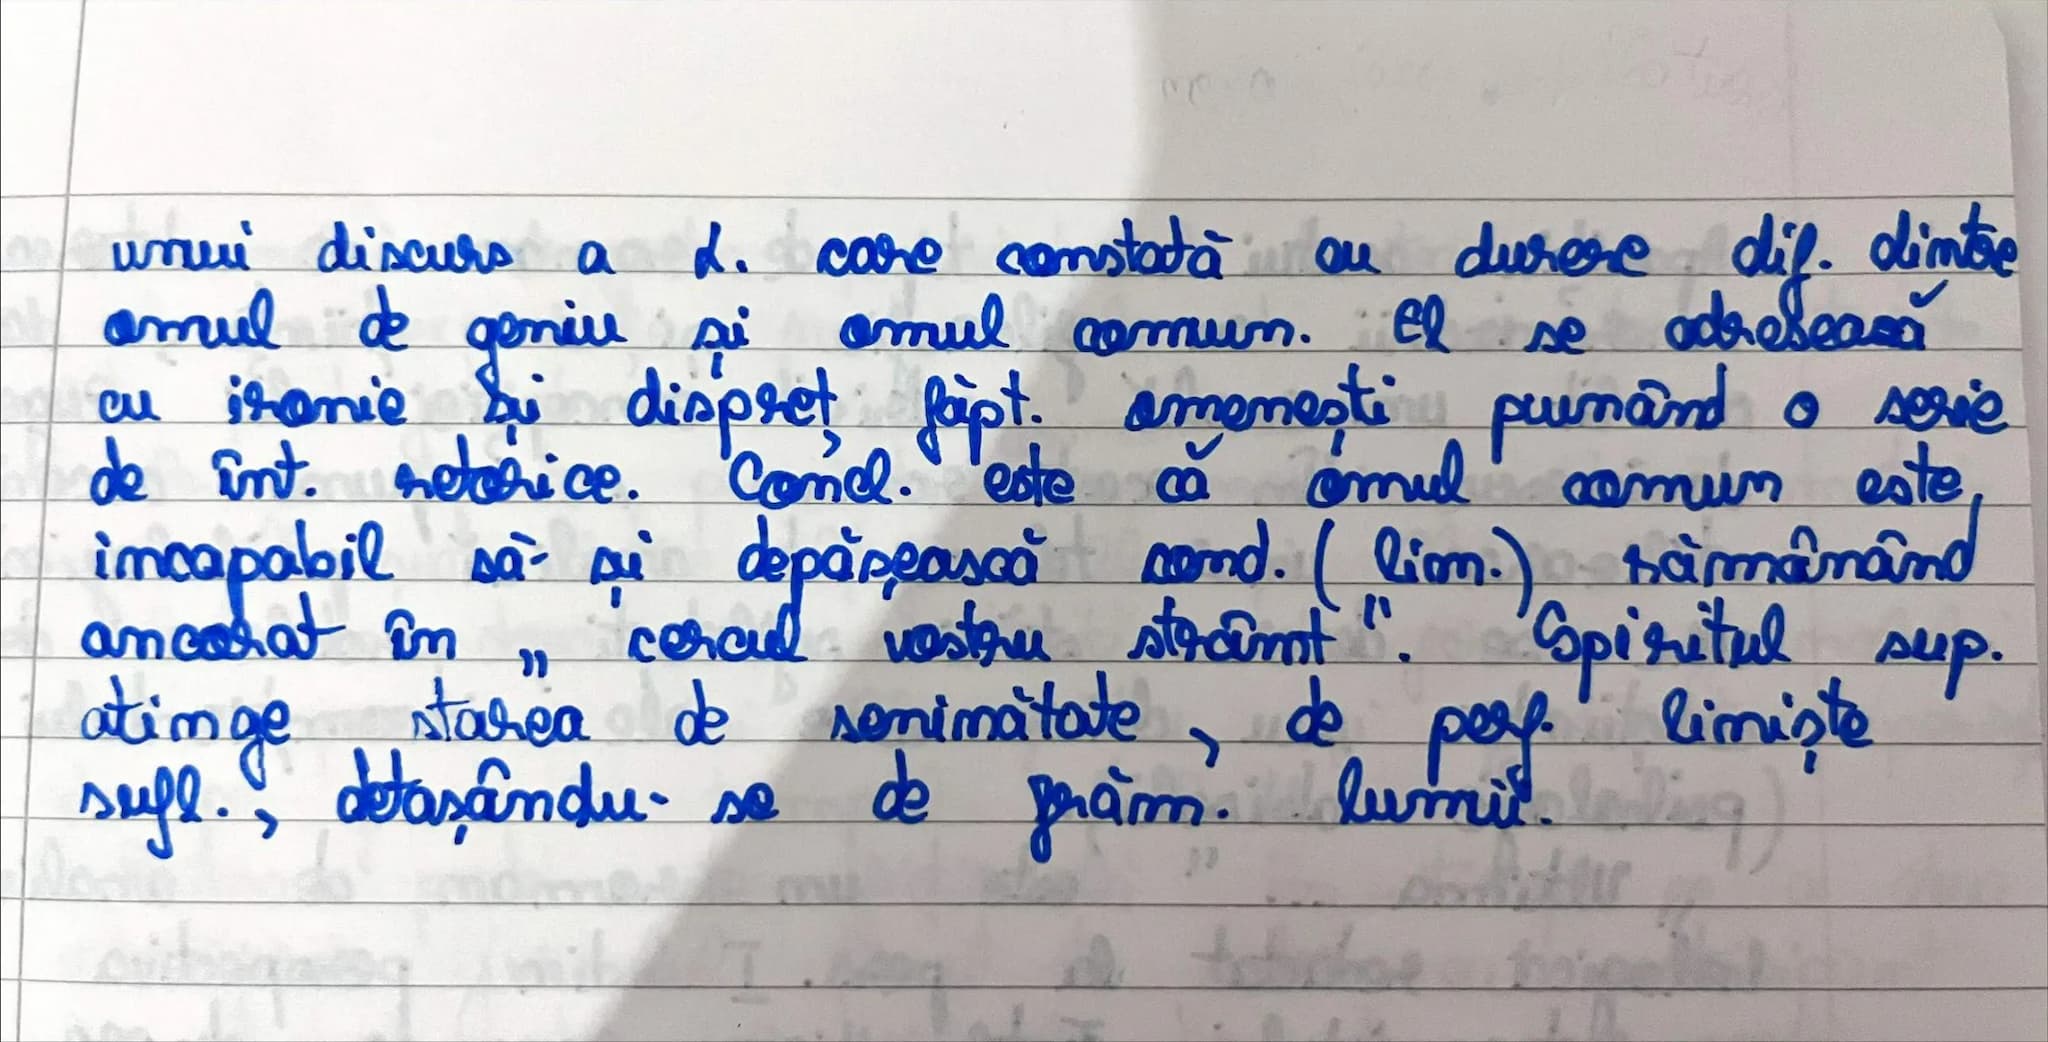 unui discurs a L. care constată cu durere dif. dintre
omul de geniu și omul comun. El se adresează
cu ironie și dispreț făpt. omenești punând o serie
de înt. retorice. Concl. este că omul comun este,
incapabil să-și depășească cond. (lim.) rămânând
ancorat în „cercul vostru strâmt". Spiritul sup.
atinge starea de seninătate, de perf. liniște
sufl., detașându-se de frăm. lumii.